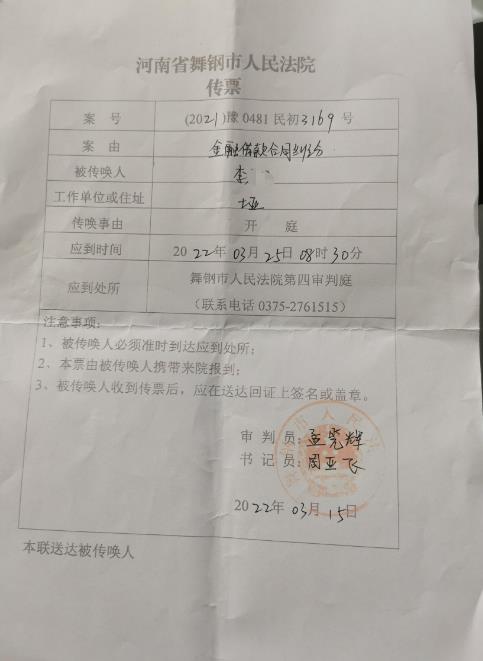 河南省舞钢市人民法院
传票
案 号 (2021)豫 0481 民初 3169 号
案 由 金融借款合同纠纷
被传唤人 李
工作单位或住址 垭
传唤事由 开 庭
应到时间 2022年 03月 25日 08时 30分
应到处所 舞钢市人民法院第四审判庭
（联系电话 0375-2761515）
注意事项:
1、被传唤人必须准时到达应到处所；
2、本票由被传唤人携带来院报到；
3、被传唤人收到传票后，应在送达回证上签名或盖章。
审 判 员: 孟晓辉
书 记 员: 周亚飞
2022年 03月 15日
本联送达被传唤人